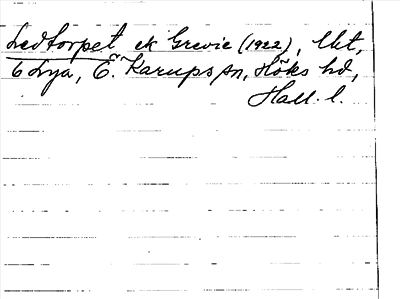 Ledtorpet ek Grevie (1922), Ukt,
6 Lya, Ö. Karups sn, Höks hd,
Hall. l.